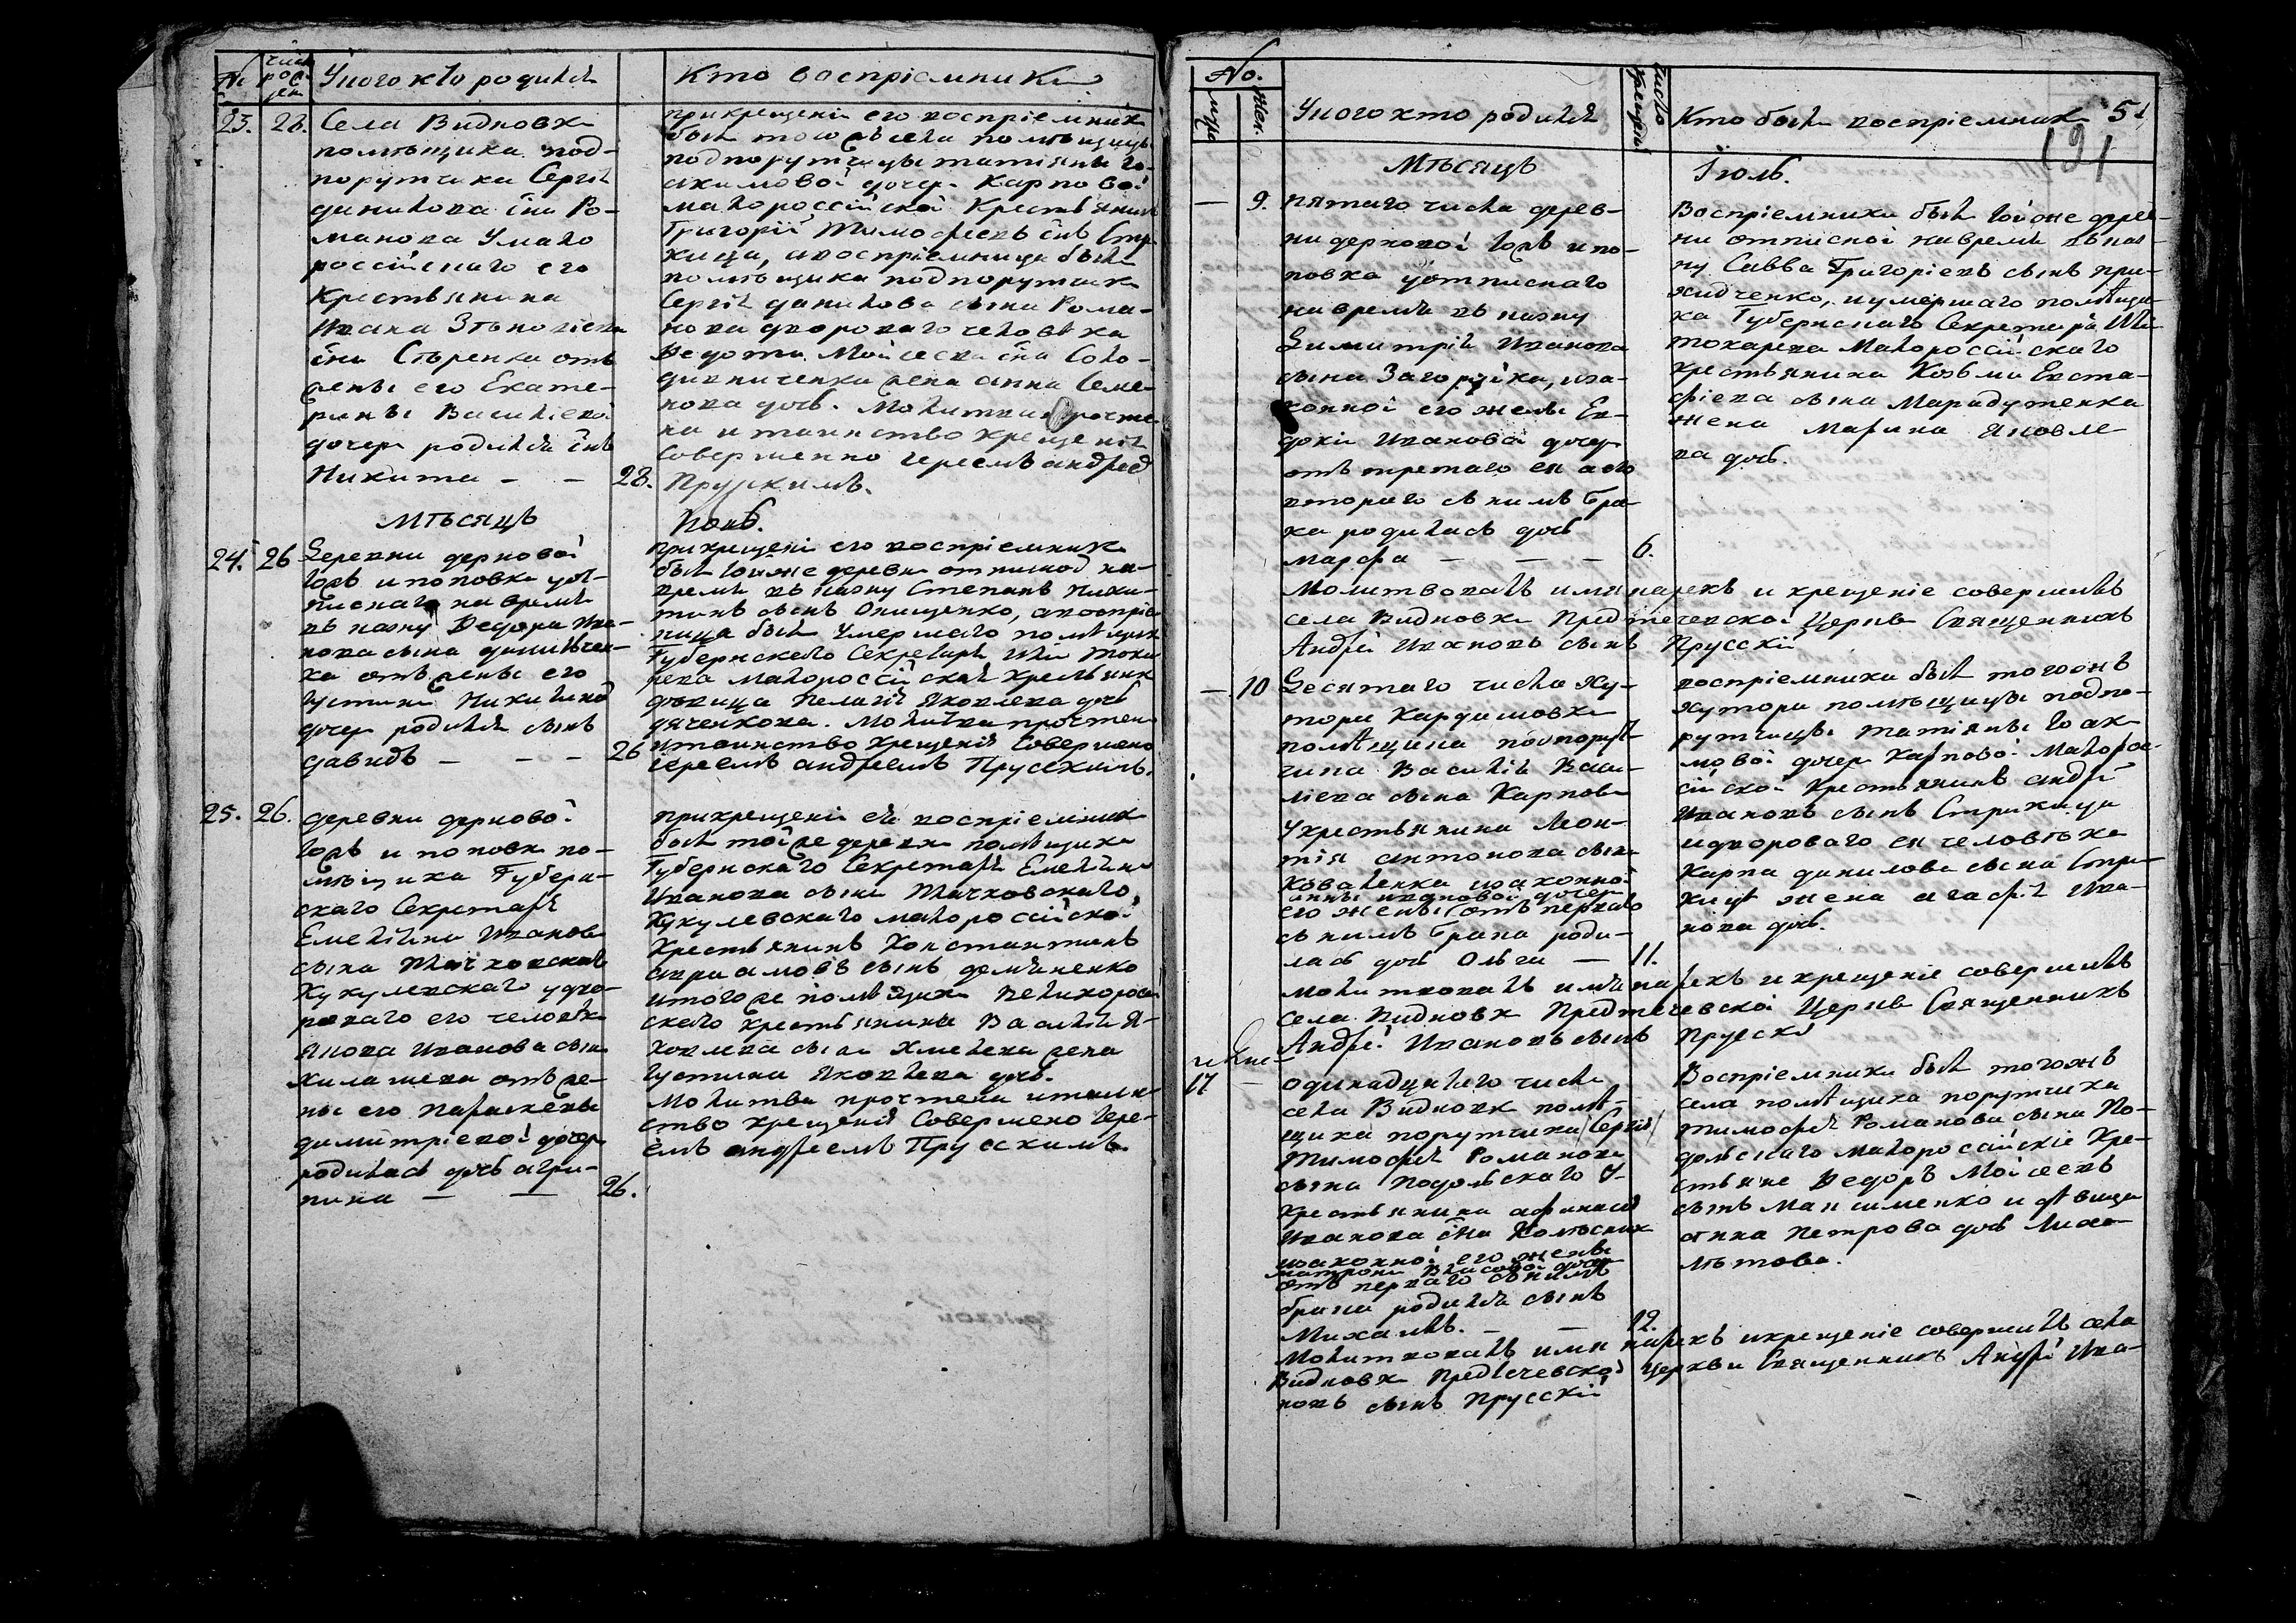 №
число рож ден
У кого кто родился
Кто воспріемники
23. 28.
Села Видновки
помѣщика под-
порутчика Сергѣя
данилова сна Ро-
манова у мало
россійскаго его
Крестьянина
Ивана Зѣновіева
сна Сѣренка отъ
жены его Екате-
рины Василіевой
дочери родился снъ
Никита - - 28.
прикрещеніи его воспріемникъ
былъ того жъ села помѣщицы
подпорутчицы татіяны Іо-
акимовой дочери Карповой
малороссійской Крестьянинъ
Григорій Тимофеевъ снъ Стри
жица, а воспріемница была
помѣщика подпорутчика
Сергѣя данилова сына Рома-
нова двороваго человѣка
Ѳедота Моисеева сна Соло-
дивниченка жена анна Семе-
нова дочь. Молитва прочте-
на и таинство крещенія
Совершенно іереемъ андреемъ
Прускимъ.
Мѣсяцъ
Іюнь.
24. 26
Деревни дерновой
тожъ и поповки уот-
писнаго на время
въ казну Ѳедора Ива-
нова сына данилчен-
ка отъ жены его
Іустины Никитиной
дочери родился сынъ
давидъ - - - 26
прикрещеніи его воспріемникъ
былъ тоиже деревни отписной на
время въ казну Степанъ Ники-
тинъ сынъ Онищенко, а воспріе
ница была умершаго помѣщика
Губернскаго Секретаря Іліи Тока
рева малороссійской крестьянки
дѣвица Пелагія Яковлева дочь
дяченкова. Молитва прочтена
и таинство крещенія Совершено
іереемъ андреемъ Прусскимъ.
25. 26.
деревни дерновой
тожъ и поповки по-
мѣщика Губерн-
скаго Секретаря
Емеліяна Иванова
сына
Кукулевскаго у дво-
роваго его человѣка
Якова Иванова сына
отъ же-
ны его Параскевы
димитріевой дочери
родилась дочь агри-
пина - - 26.
прикрещеніи ея воспріемникъ
былъ тойже деревни помѣщика
Губернскаго Секретаря Емеліяна
Иванова сына
Кукулевскаго малороссійской
Крестьянинъ Константинъ
авраамовъ сынъ демяненко
и тогоже помѣщика Великоросій
скаго крестьянина Василія Я-
ковлева сына Хмелева жена
Іустина Яковлева дочь.
Молитва прочтена и таин-
ство крещенія Совершено Іере-
емъ андреемъ Прусскимъ
No.
муж
Жен.
У кого кто родился
число крещенія
Кто были воспріемники
51
191
Мѣсяцъ
Іюль.
— 9.
пятаго числа дерев-
ни дерновой тожъ и по-
повка уотписнаго
на время въ казну
Димитрія Иванова
сына Загоруйка, иза-
конной его жены Ев-
докіи Ивановой дочери
отъ третаго ея а его
втораго съ нимъ бра-
ка родилась дочь
Марфа — — — 6.
Воспріемники были тойже дерев-
ни отписной на время въ каз-
ну Савва Григоріевъ сынъ при-
ходченко, и умершаго помѣщи-
ка Губернскаго Секретаря Іліи
токарева Малороссійскаго
крестьянина Козьми Евста-
фіева сына Марадутенка
жена Марина Яковле
ва дочь.
Молитвовалъ имя нарекъ и крещеніе совершилъ
села Видновки Предтечевской Церкви Священникъ
Андрей Ивановъ сынъ Прусскій
— 10
Десятаго числа Ху-
тора Кардимовки
помѣщика подпорут-
чика Василія Васи-
ліева сына Карпова
У крестьянина Леон-
тія антонова сына
Коваленка изаконной
его жены анны ивановой дочери отъ перваго
съ нимъ брака роди-
лась дочь Ольга — 11.
воспріемники были тогожъ
хутора помѣщицы подпо-
рутчицы татіяны Іоаки
мовой дочери Карповой Малорос-
сійской Крестьянинъ андрей
Ивановъ сынъ Стрижица
и двороваго ея человѣка
Карпа данилова сына Стри-
жицы жена агафія Ива-
нова дочь.
Молитвовалъ имя нарекъ и крещеніе совершилъ
села Видновки Предтечевской Церкви Священникъ
Андрей Ивановъ сынъ Прускій
17 —
одинадцятаго числа
села Видновки помѣ-
щика порутчика (Сергія)
Тимофея Романова
сына Подольскаго у
крестьянина афанасія
Иванова сна Колѣсника
изаконной его жены
матроны Власовой дочери
отъ перваго съ нимъ
брака родился сынъ
Михаилъ. — — 12.
Воспріемники были тогожъ
села помѣщика порутчика
Тимофея Романова сына По-
дольскаго Малороссійскіе Кре-
стьяне Ѳедоръ Моисеевъ
сынъ Максименко и дѣвица
анна Петрова дочь
Молитвовалъ имя нарекъ и крещеніе совершилъ села
Видновки Предтечевской церкви Священникъ Андрей Ива-
новъ сынъ Прусскій